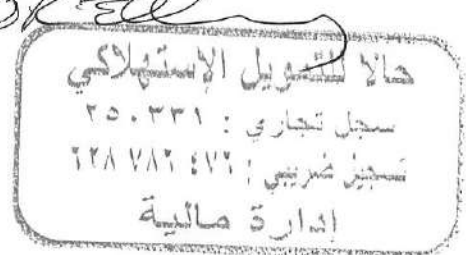 حالا للتمويل الإستهلاكي
سجل تجاري : ٢٥٠٣٣١
تسجيل ضريبي : ٤٧٢ ٧٨٢ ٦٢٨
إدارة مالية